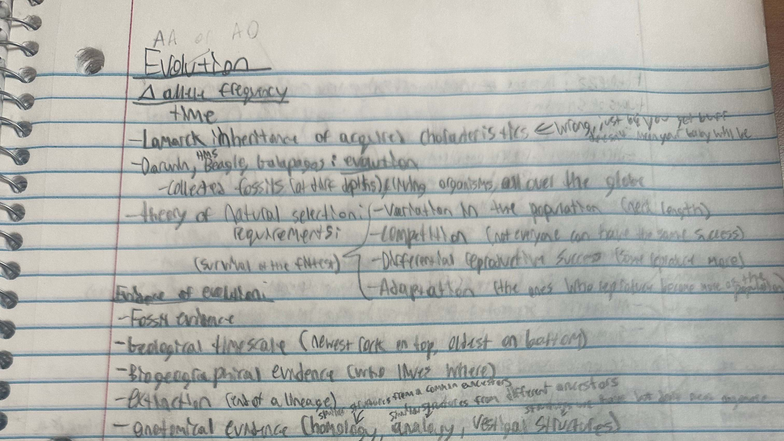 AA or AO
Evolution
Δ allele frequency
time
-Lamarck inheritance of acquired characteristics ← Wrong, just bc you get buff
doesn't mean your baby will be
-Darwin, HMS Beagle, Galapagos: evolution
-collected fossils (at dark depths), living organisms all over the globe
-theory of natural selection: (-Variation in the population (neck length)
Requirements: -Competition (not everyone can have the same success)
(survival of the fittest) -Differential reproductive success (some reproduce more)
-Adaptation (the ones who reproduce become more
Evidence of evolution:
-Fossil evidence
-Geological timescale (newest rock on top, oldest on bottom)
-Biogeographical evidence (who lives where)
-Extinction (end of a lineage)
structures from a common ancestors structures from different ancestors
-anatomical evidence (homology, analogy, vestigal structures)